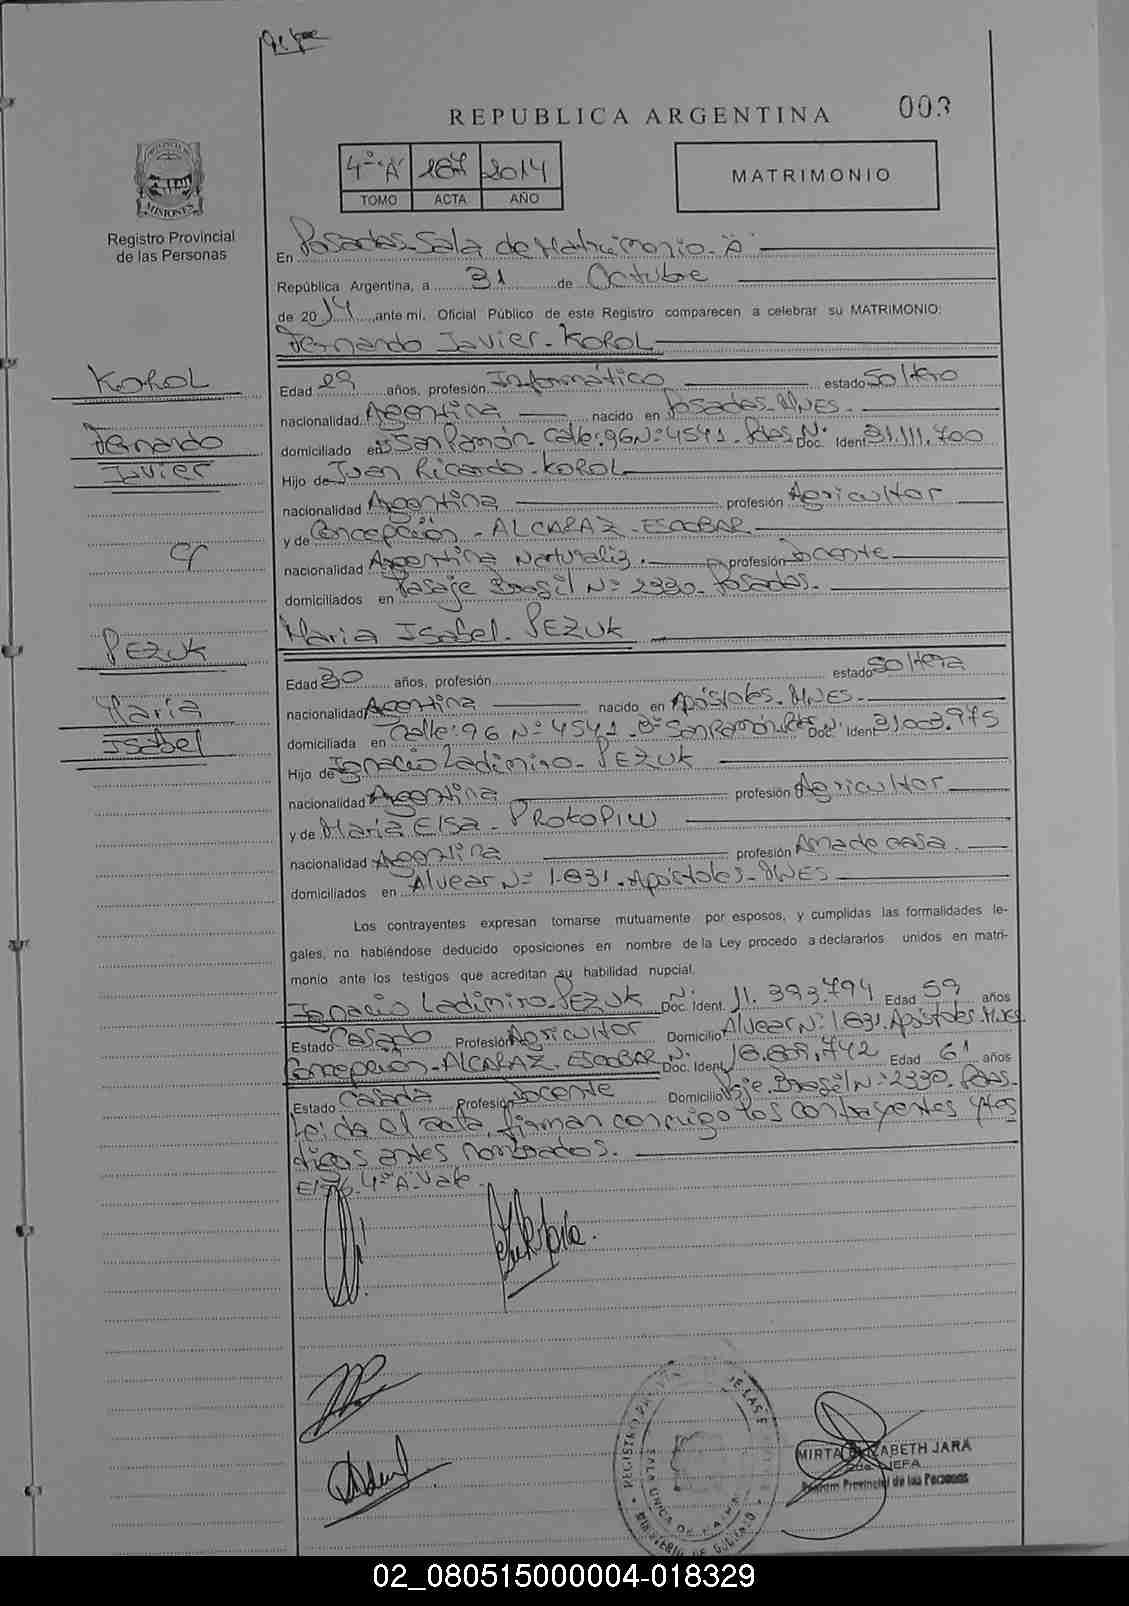 REPUBLICA ARGENTINA 003
4º "A" 187 2014
TOMO ACTA AÑO
MATRIMONIO
PROVINCIA DE MISIONES
Registro Provincial
de las Personas
En Posadas-Sala de Matrimonio-"A"
República Argentina, a 31 de Octubre
de 2014, ante mi, Oficial Público de este Registro comparecen a celebrar su MATRIMONIO:
Fernando Javier-KOROL
KOROL
Fernando
Javier
c/
PEZUK
Maria
Isabel
Edad 29 años, profesión Informático estado Soltero
nacionalidad Argentina nacido en Posadas-MNES-
domiciliado en San Ramón-Calle:96 Nº4541-Pdas. Nº Doc. Ident 31.111.700
Hijo de Juan Ricardo-KOROL
nacionalidad Argentina profesión Agricultor
y de Concepción-ALCARAZ-ESCOBAR
nacionalidad Argentina Naturaliz. profesión Docente
domiciliados en Pasaje Brasil Nº 2330-Posadas.
Maria Isabel-PEZUK
Edad 30 años, profesión estado Soltera
nacionalidad Argentina nacido en Apóstoles-MNES-
domiciliada en Calle:96 Nº4541-Bº San Ramón-Pdas. Nº Doc. Ident 31.003.975
Hijo de Ignacio Ladimiro-PEZUK
nacionalidad Argentina profesión Agricultor
y de María Elsa-PROKOPIW
nacionalidad Argentina profesión Ama de casa.
domiciliados en Alvear Nº 1.631-Apóstoles-MNES
Los contrayentes expresan tomarse mutuamente por esposos, y cumplidas las formalidades le-
gales, no habiéndose deducido oposiciones en nombre de la Ley procedo a declararlos unidos en matri-
monio ante los testigos que acreditan su habilidad nupcial,
Ignacio Ladimiro-PEZUK Nº Doc. Ident. 11.393.794 Edad 59 años
Estado Casado Profesión Agricultor Domicilio Alvear Nº 1.631-Apóstoles-MNES
Concepción-ALCARAZ-ESCOBAR Nº Doc. Ident. 18.809.742 Edad 61 años
Estado Casada Profesión Docente Domicilio Pje.Brasil Nº 2330-Pdas-
Leída el acta, firman conmigo los contrayentes y tes
tigos antes nombrados.
4º "A" Vale.
MIRTA ELIZABETH JARA
JEFA
Registro Provincial de las Personas
REGISTRO PROVINCIAL DE LAS PERSONAS
MINISTERIO DE GOBIERNO
02_080515000004-018329